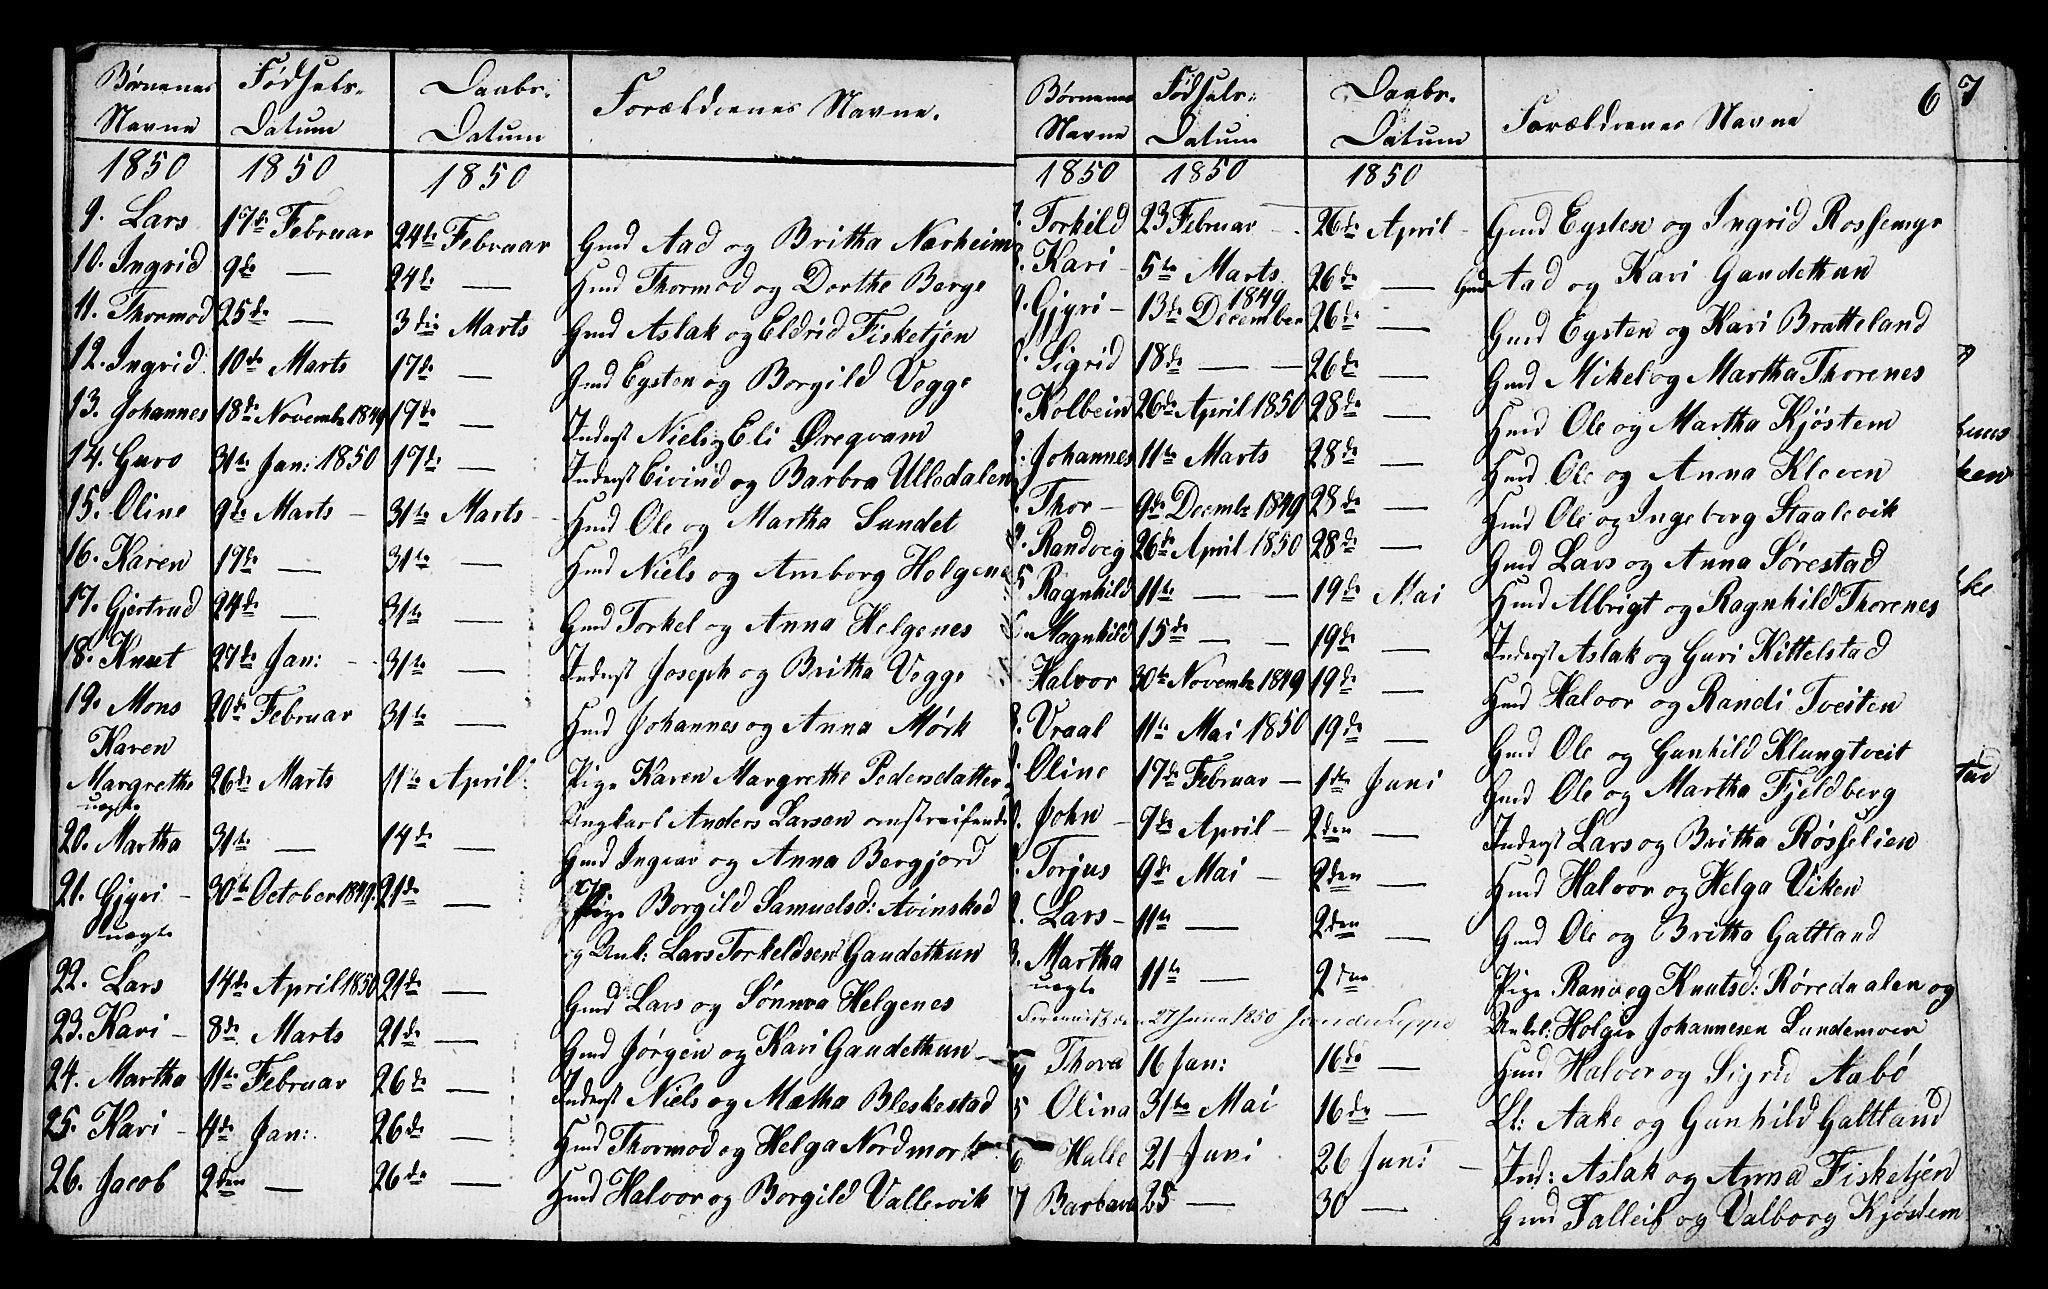 Børnenes Fødsels- Daabs- Forældrenes Navne.
Navne Datum Datum
1850 1850 1850
9. Lars 17de Februar 24de Februar Gmd Aad og Britha Nærheim
10. Ingrid 9de — 24de — Hmd Thormod og Dorthe Berge
11. Thormod 25de — 3die Marts Gmd Aslak og Eldrid Fisketjen
12. Ingrid 10de Marts 17de — Gmd Eysten og Borgild Vegge
13. Johannes 18de Novembr 1849 17de — Inderst Niels og Eli Øregvam
14. Guro 31te Jan: 1850 17de — Inderst Eivind og Barbra Ulledalen
15. Oline 9de Marts — 31te Marts — Hmd Ole og Martha Sundet
16. Karen 17de — 31te — Hmd Niels og Amborg Helgene
17. Gjertrud 24de — 31te — Gmd Torkel og Anna Helgenes
18. Knut 27de Jan: — 31te — Inderst Joseph og Britha Vegge
19. Mons 20de Februar 31te — Hmd Johannes og Anna Mørk
Karen
Margrethe 26de Marts 11te April Pige Karen Margrethe Pedersdatter
uægte Ungkarl Anders Larsen omstreifende
20. Martha 31te — 14de Gmd Ingvar og Anna Bergjord
21. Gjyri — 30te October 1849. 21de — Pige Borgild Samuelsd: Avinskod
uægte og Unk: Lars Torkeldsen Gaudethun
22. Lars 14de April 1850 21de — Gmd Lars og Sønnva Helgenes
23. Kari — 8de Marts 21de — Gmd Jørgen og Kari Gaudethun
24. Martha 11te Februar 26de — Inderst Niels og Mætha Bleskestad
25. Kari — 4de Jan: 26de — Hmd Thormod og Helga Nordmork
26. Jacob 2den — 26de — Hmd Halvor og Borgild Vallevik
Børnenes Fødsels- Daabs- Forældrenes Navne 6 7
Navne Datum Datum
1850 1850 1850
Torkild 23 Februar — 26de April — Gmd Eysten og Ingrid Rossemyr
Kari — 5te Marts 26de — Gmd Aad og Kari Gaudethun
Gjyri — 13de December 1849 26de — Gmd Eysten og Kari Bratteland
Sigrid 18de — — 26de — Gmd Mikel og Martha Thorenes
Kolbein 26de April 1850 28de — Hmd Ole og Martha Kjøstem
Johannes 11te Marts 28de — Hmd Ole og Anna Kleven
Thor — 9de Decembr 1849 28de — Hmd Ole og Ingeborg Staalevik
Randveg 26de April 1850 28de — Gmd Lars og Anna Sørestad
5 Ragnhild 11te — — 19de Mai Hmd Albrigt og Ragnhild Thorenes
Magnhild 15de — — 19de — Inderst Aslak og Guri Kittelstad
Halvor 30te Novembr 1849 19de — Hmd Halvor og Randi Tveiten
8. Vraal 11te Mai 1850 19de — Gmd Ole og Gunhild Klungtveit
Oline 17de Februar — 1ste Juni Gmd Ole og Martha Fjeldberg
John — 9de April — 2den — Inderst Lars og Britha Røsselien
Torjus 9de Mai — 2den — Hmd Halvor og Helga Viken
Lars — 11te — 2den — Gmd Ole og Britha Galtland
3. Martha 11te — 2den Pige Ranveg Knutsd: Røredaalen og
uægte Unkl: Holger Johannesen Lundemoen
27 1850
4 Thora 16 Jan: 16de — Hmd Halvor og Sigrid Aabø
5 Olina 31te Mai 16de — Lt: Aake og Gunhild Galtland
6 Halle 21 Juni 26 Juni — Ind: Aslak og Anna Fisketjen
7 Barbara 25 — 30 — Gmd Talleif og Valborg Kjøstem